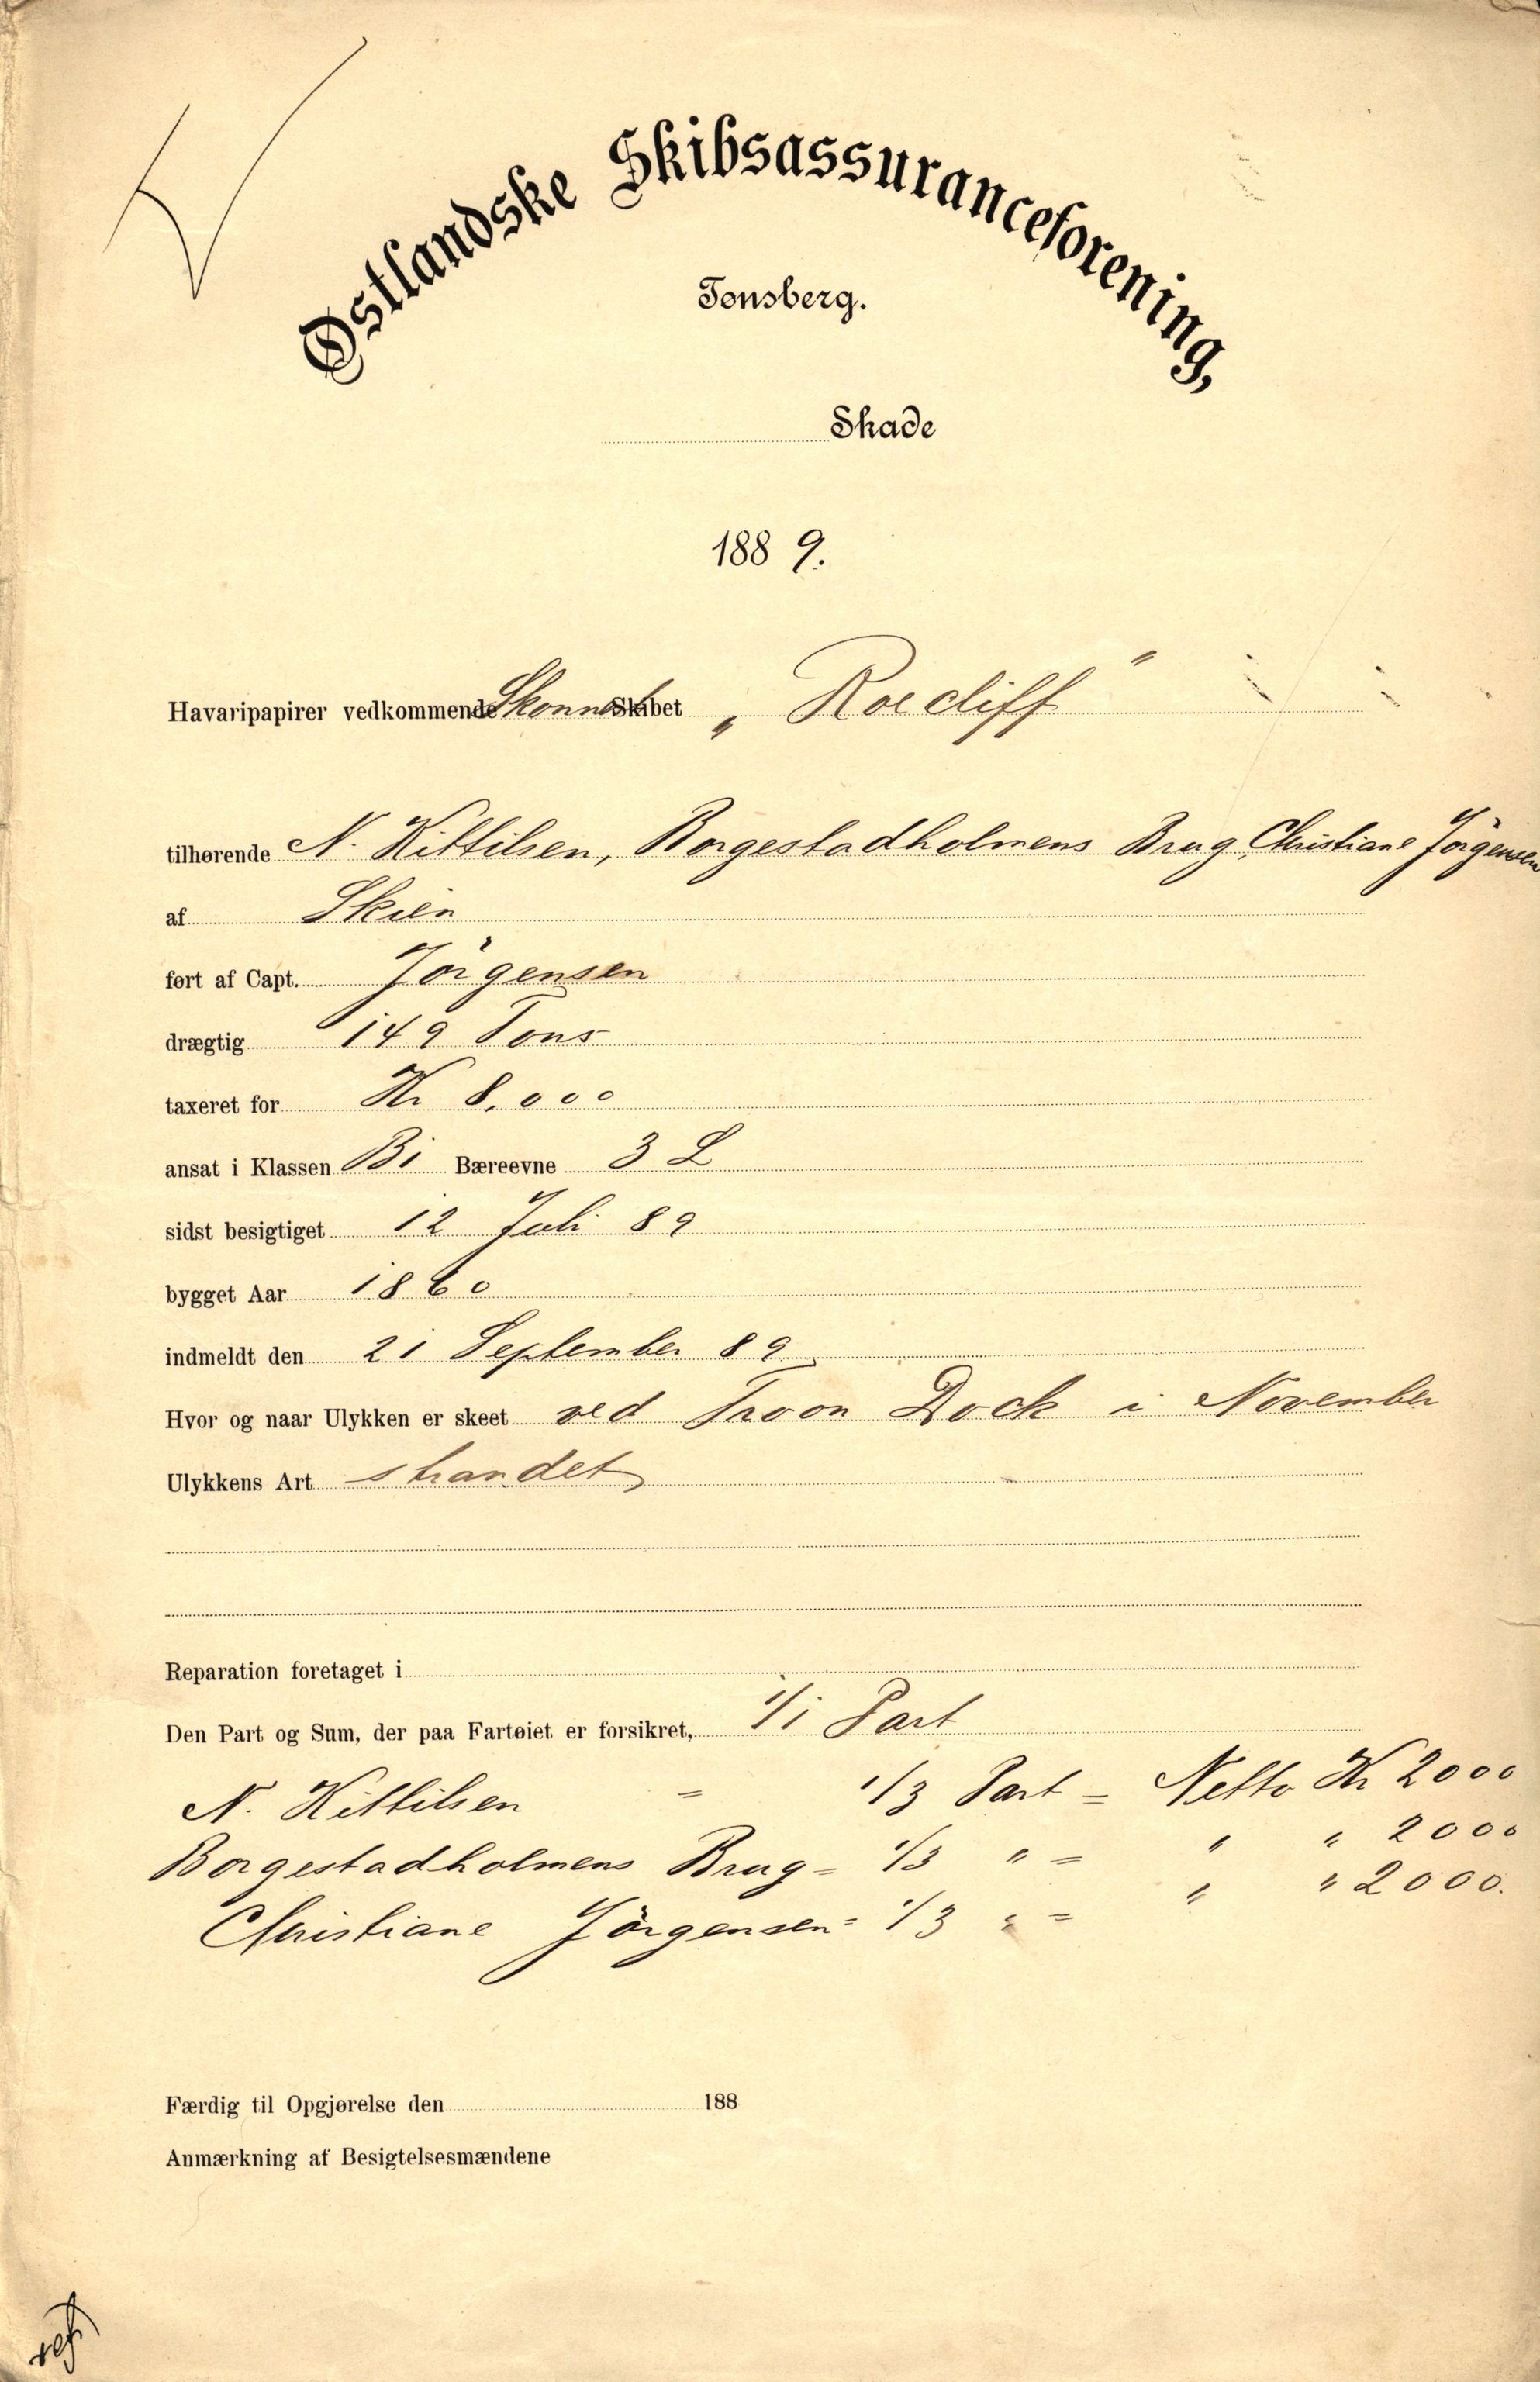 Østlandske Skibsassuranceforening,
Tønsberg.
Skade
1889.
Havaripapirer vedkommende Skonnert Skibet „Roecliff"
tilhørende N. Kittilsen, Borgestadholmens Brug, Christiane Jörgensen
af Skien
ført af Capt. Jörgensen
drægtig 149 Tons
taxeret for Kr 8.000
ansat i Klassen B1 Bæreevne 3 L
sidst besigtiget 12 Juli 89
bygget Aar 1860
indmeldt den 21 September 89
Hvor og naar Ulykken er skeet ved Troon Dock i November
Ulykkens Art strandet
Reparation foretaget i
Den Part og Sum, der paa Fartøiet er forsikret, 1/1 Part
N. Kittilsen = 1/3 Part = Netto Kr 2000
Borgestadholmens Brug = 1/3 " = " " 2000
Christiane Jörgensen = 1/3 " = " " 2000.
Færdig til Opgjørelse den 188
Anmærkning af Besigtelsesmændene